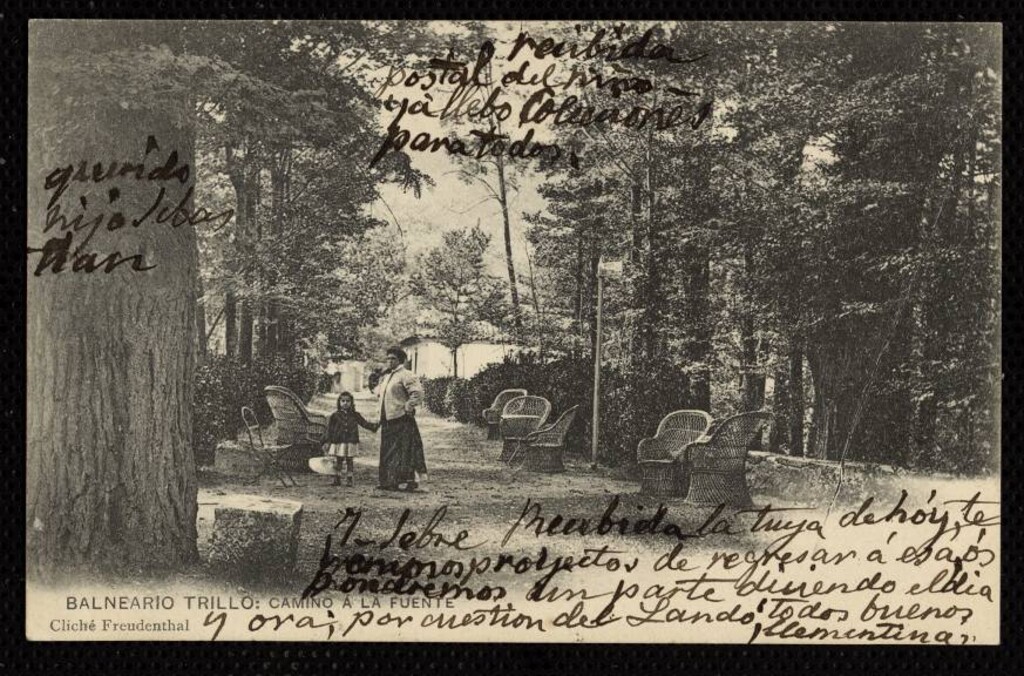 querido
hijo Sebas
tian
recibida
postal del niño
ya llebo Colecciones
para todos,
7 Sebre Recibida la tuya de hóy, te
nemos proyectos de regresar á esa, os
pondremos un parte diciendo el dia
y ora; por cuestion del Landó, todos buenos,
Clementina,
BALNEARIO TRILLO: CAMINO A LA FUENTE
Cliché Freudenthal